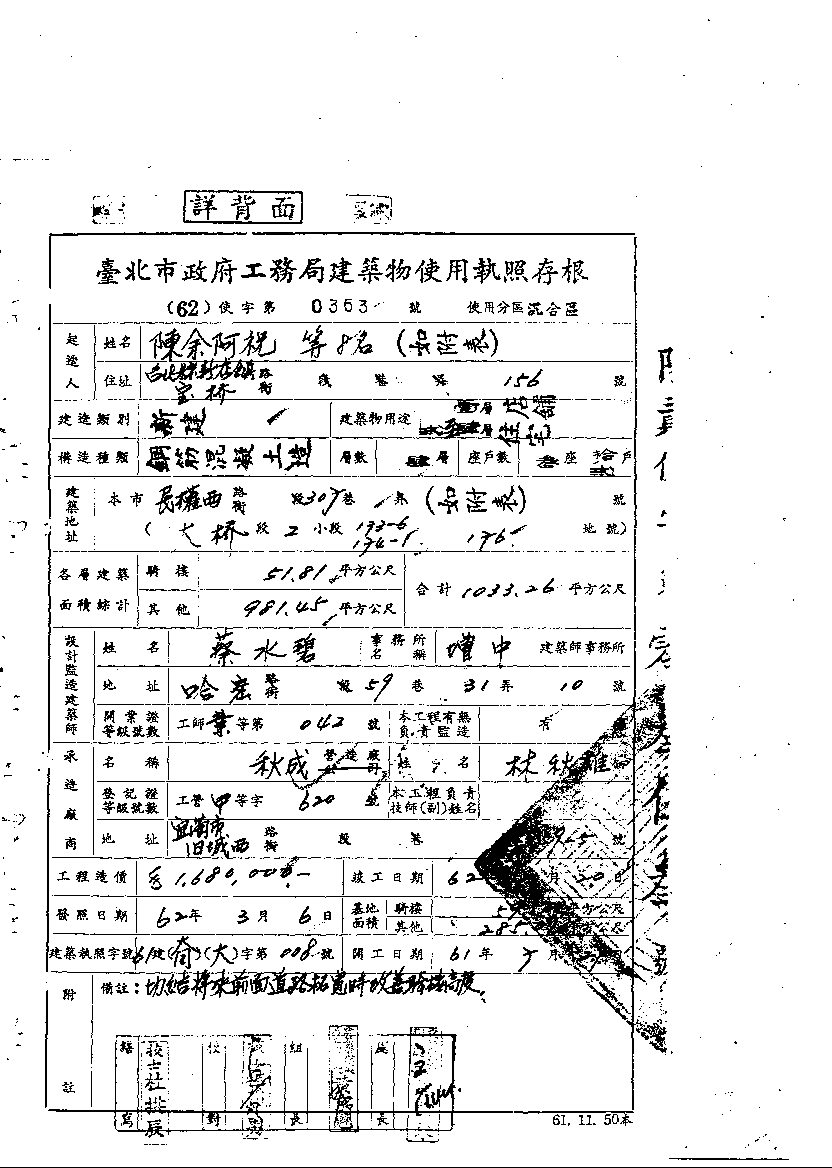 詳背面
臺北市政府工務局建築物使用執照存根
(62)使字第 0363 號 使用分區 混合區
起造人 姓名 陳余阿祝 等8名 (如附表)
住址 台北縣新店鎮 宝桥 路街 段 巷 弄 156 號
建造類別 新建 建築物用途 層店舖 層住宅
構造種類 鋼筋混凝土造 層數 肆層 座戶數 座 拾 戶
建築地址 本市 民權西 路街 段 307 巷 弄 (如附表) 號
(大桥 段 2 小段 173-6 174-1 176 地號)
各層建築面積綜計 騎樓 51.81 平方公尺 合計 1033.26 平方公尺
其他 981.45 平方公尺
設計監造建築師 姓名 蔡水碧 事務所名稱 增中 建築師事務所
地址 哈密 路街 段 59 巷 31 弄 10 號
開業證等級號數 工師 業 等第 042 號 本工程有無負責監造 有
承造廠商 名稱 秋成 營造廠 姓名 林秋雄
登記證等級號數 工營 甲 等字 620 號 本工程負責技師(副)姓名
地址 宜蘭市 旧城西 路街 段 巷 號
工程造價 1,680,000- 竣工日期 62 月 20 日
發照日期 62 年 3 月 6 日 基地面積 騎樓 平方公尺
其他 285 公尺
建築執照字號 61 建(奇)(大)字第 008 號 開工日期 61 年 月
附註 備註:切結將來前面道路拓寬時改善騎樓高度
繕寫 校對 組長 長
61.11.50本